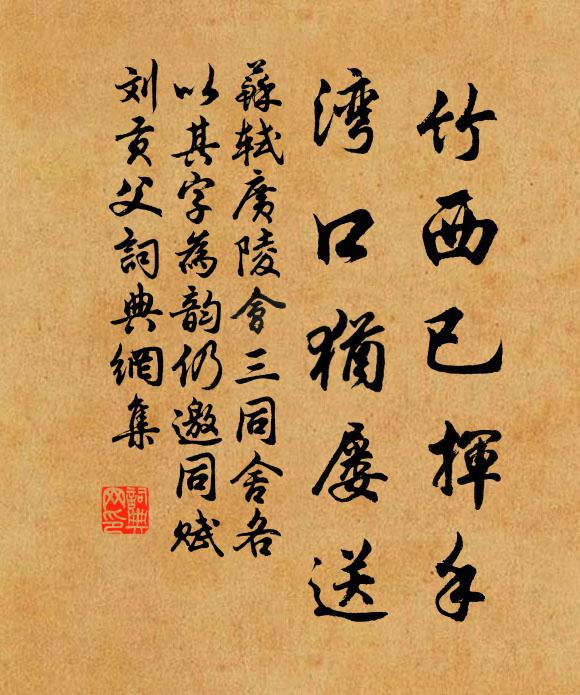 竹西已揮手
湾口猶屡送
蘇軾廣陵會三同舍各
以其字為韵仍邀同賦
刘貢父詞典網集
詞典網印